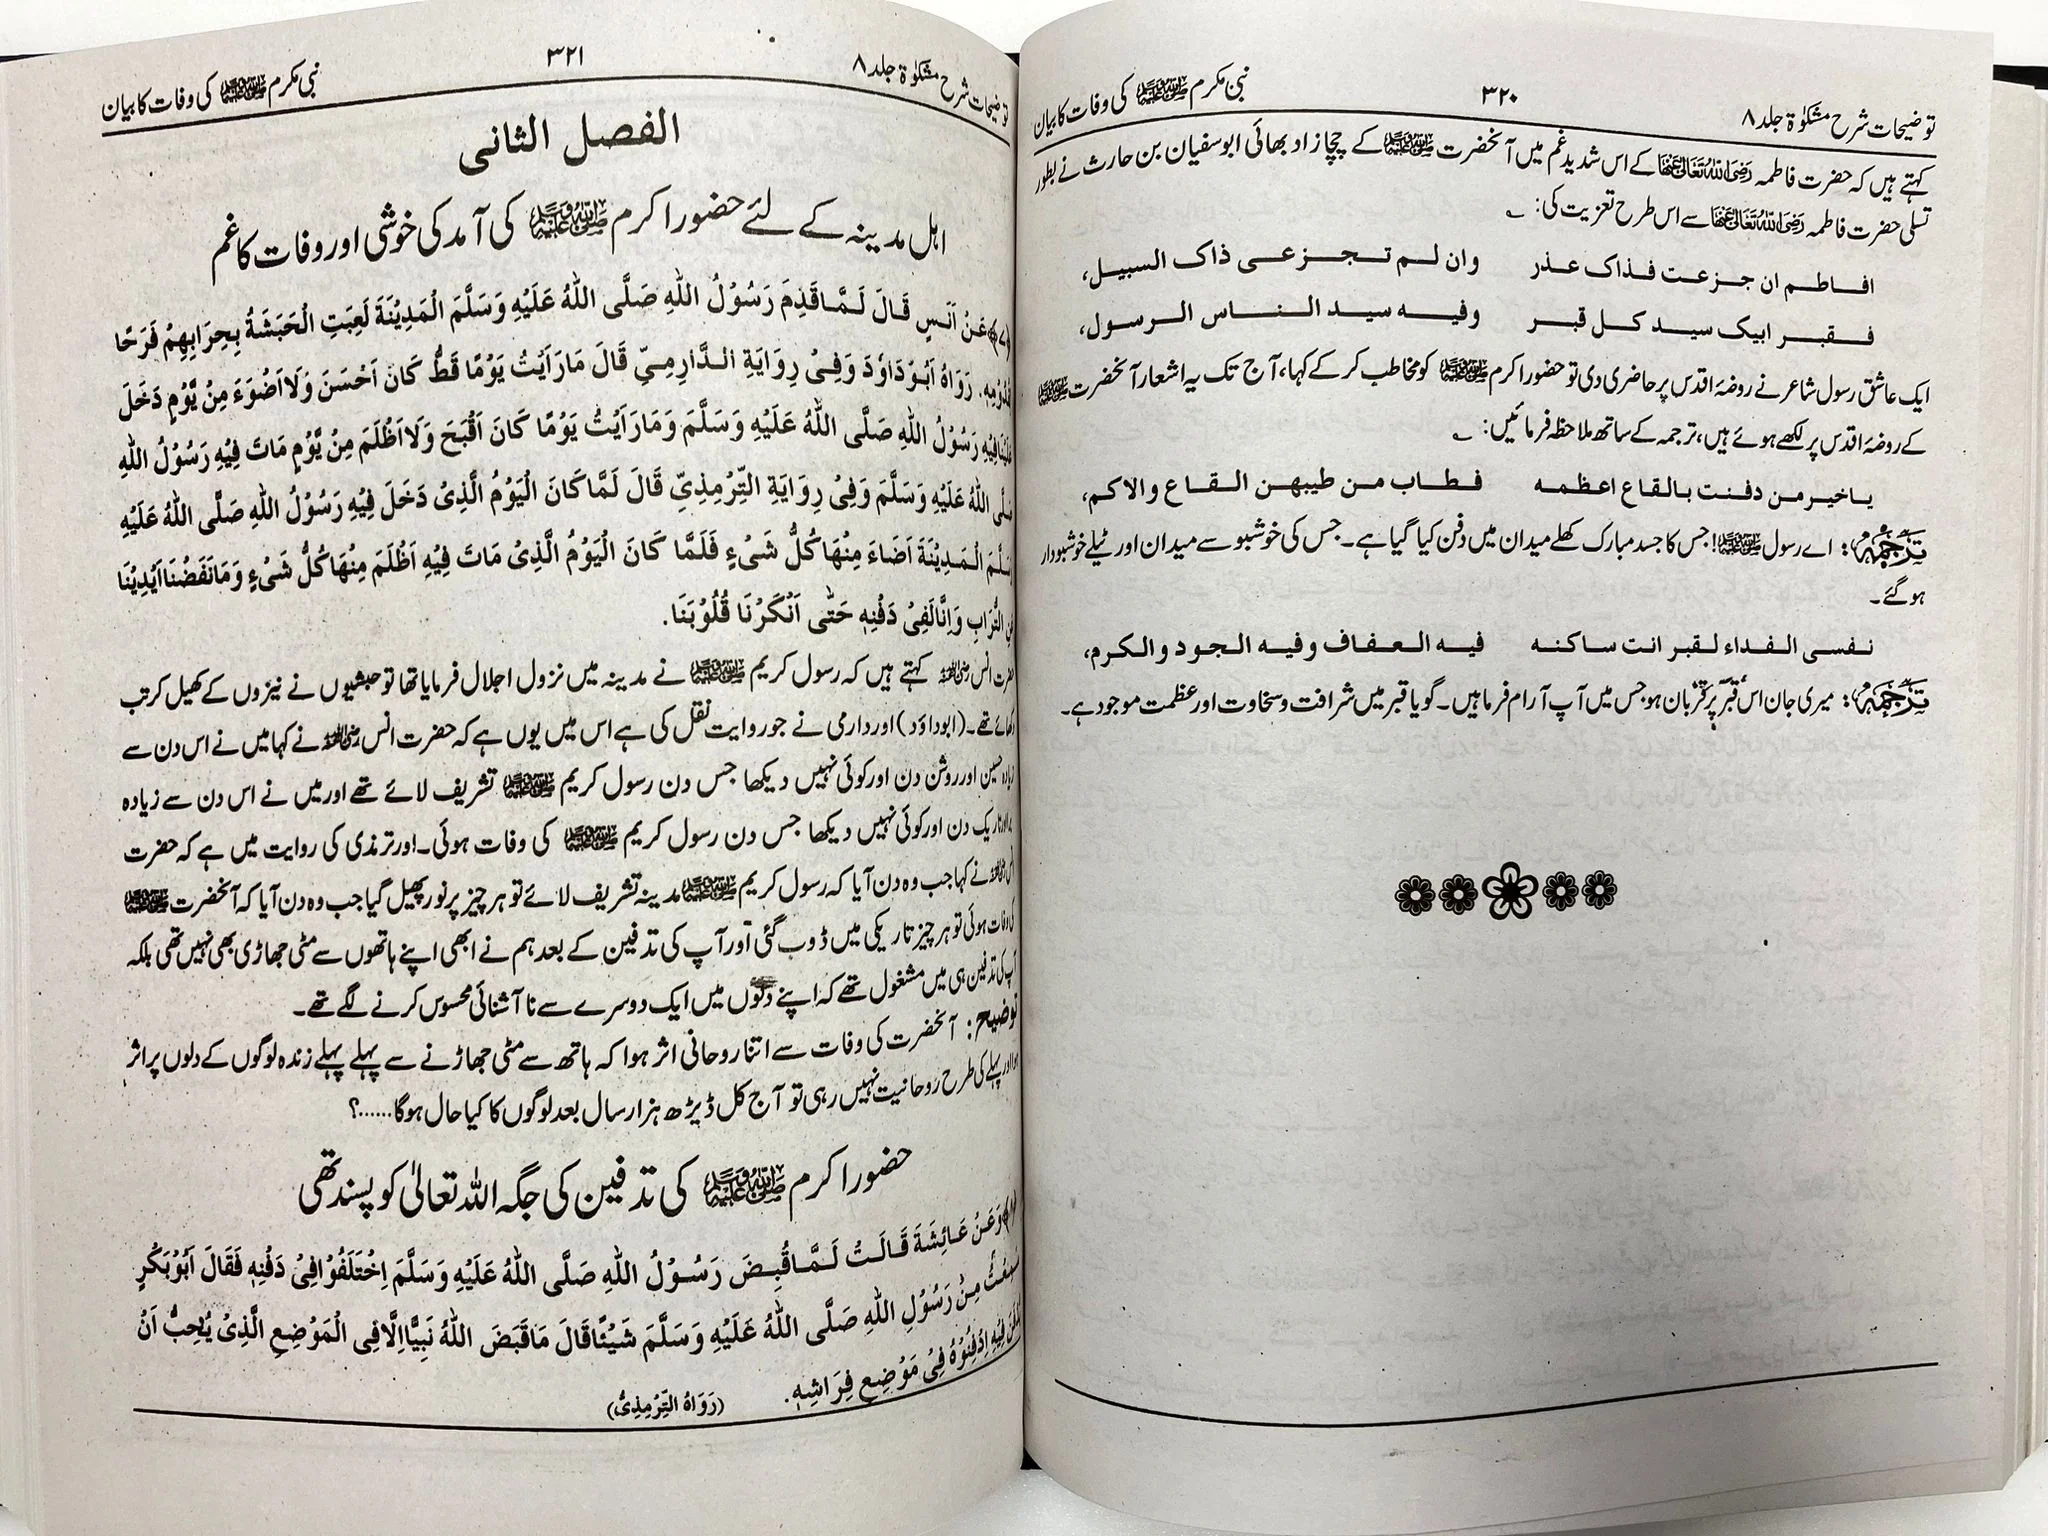 توضیحات شرح مشکوٰۃ جلد ۸ ۳۲۰ نبی مکرم ﷺ کی وفات کا بیان
کہتے ہیں کہ حضرت فاطمہ رَضِیَ اللّٰہُ تَعَالٰی عَنْہَا کے اس شدید غم میں آنحضرت ﷺ کے چچازاد بھائی ابوسفیان بن حارث نے بطور
تسلی حضرت فاطمہ رَضِیَ اللّٰہُ تَعَالٰی عَنْہَا سے اس طرح تعزیت کی:
افاطم ان جزعت فذاک عذر وان لم تجزعی ذاک السبیل،
فقبر ابیک سید کل قبر وفیہ سید الناس الرسول،
ایک عاشق رسول شاعر نے روضۂ اقدس پر حاضری دی تو حضور اکرم ﷺ کو مخاطب کر کے کہا، آج تک یہ اشعار آنحضرت ﷺ
کے روضۂ اقدس پر لکھے ہوئے ہیں، ترجمہ کے ساتھ ملاحظہ فرمائیں:
یاخیر من دفنت بالقاع اعظمہ فطاب من طیبھن القاع والاکم،
ترجمہ: اے رسول ﷺ! جس کا جسد مبارک کھلے میدان میں دفن کیا گیا ہے۔ جس کی خوشبو سے میدان اور ٹیلے خوشبودار
ہو گئے۔
نفسی الفداء لقبر انت ساکنہ فیہ العفاف وفیہ الجود والکرم،
ترجمہ: میری جان اس قبر پر قربان ہو جس میں آپ آرام فرما ہیں۔ گویا قبر میں شرافت وسخاوت اور عظمت موجود ہے۔
توضیحات شرح مشکوٰۃ جلد ۸ ۳۲۱ نبی مکرم ﷺ کی وفات کا بیان
الفصل الثانی
اہل مدینہ کے لئے حضور اکرم ﷺ کی آمد کی خوشی اور وفات کا غم
﴿۷﴾ عَنْ اَنَسٍ قَالَ لَمَّاقَدِمَ رَسُوْلُ اللّٰهِ صَلَّى اللّٰهُ عَلَيْهِ وَسَلَّمَ الْمَدِيْنَةَ لَعِبَتِ الْحَبَشَةُ بِحِرَابِهِمْ فَرَحًا
لِقُدُوْمِهِ. رَوَاهُ اَبُوْدَاوٗدَ وَفِيْ رِوَايَةِ الدَّارِمِيِّ قَالَ مَارَاَيْتُ يَوْمًا قَطُّ كَانَ اَحْسَنَ وَلَااَضْوَءَ مِنْ يَّوْمٍ دَخَلَ
عَلَيْنَافِيْهِ رَسُوْلُ اللّٰهِ صَلَّى اللّٰهُ عَلَيْهِ وَسَلَّمَ وَمَارَاَيْتُ يَوْمًا كَانَ اَقْبَحَ وَلَااَظْلَمَ مِنْ يَّوْمٍ مَاتَ فِيْهِ رَسُوْلُ اللّٰهِ
صَلَّى اللّٰهُ عَلَيْهِ وَسَلَّمَ وَفِيْ رِوَايَةِ التِّرْمِذِيِّ قَالَ لَمَّاكَانَ الْيَوْمُ الَّذِيْ دَخَلَ فِيْهِ رَسُوْلُ اللّٰهِ صَلَّى اللّٰهُ عَلَيْهِ
وَسَلَّمَ الْمَدِيْنَةَ اَضَاءَ مِنْهَاكُلُّ شَيْءٍ فَلَمَّا كَانَ الْيَوْمُ الَّذِيْ مَاتَ فِيْهِ اَظْلَمَ مِنْهَاكُلُّ شَيْءٍ وَمَانَفَضْنَااَيْدِيْنَا
عَنِ التُّرَابِ وَاِنَّالَفِيْ دَفْنِهٖ حَتّٰى اَنْكَرْنَا قُلُوْبَنَا.
حضرت انس کہتے ہیں کہ رسول کریم ﷺ نے مدینہ میں نزول اجلال فرمایا تھا تو حبشیوں نے نیزوں کے کھیل کرتب
دکھائے تھے۔ (ابوداؤد) اور دارمی نے جو روایت نقل کی ہے اس میں یوں ہے کہ حضرت انس نے کہا میں نے اس دن سے
زیادہ حسین اور روشن دن اور کوئی نہیں دیکھا جس دن رسول کریم ﷺ تشریف لائے تھے اور میں نے اس دن سے زیادہ
تاریک دن اور کوئی نہیں دیکھا جس دن رسول کریم ﷺ کی وفات ہوئی۔ اور ترمذی کی روایت میں ہے کہ حضرت
انس نے کہا جب وہ دن آیا کہ رسول کریم ﷺ مدینہ تشریف لائے تو ہر چیز پر نور پھیل گیا جب وہ دن آیا کہ آنحضرت ﷺ
کی وفات ہوئی تو ہر چیز تاریکی میں ڈوب گئی اور آپ کی تدفین کے بعد ہم نے ابھی اپنے ہاتھوں سے مٹی جھاڑی بھی نہیں تھی بلکہ
آپ کی تدفین ہی میں مشغول تھے کہ اپنے دلوں میں ایک دوسرے سے ناآشنائی محسوس کرنے لگے تھے۔
توضیح: آنحضرت کی وفات سے اتنا روحانی اثر ہوا کہ ہاتھ سے مٹی جھاڑنے سے پہلے پہلے زندہ لوگوں کے دلوں پر اثر
ہوا اور پہلے کی طرح روحانیت نہیں رہی تو آج کل ڈیڑھ ہزار سال بعد لوگوں کا کیا حال ہوگا......؟
حضور اکرم ﷺ کی تدفین کی جگہ اللہ تعالیٰ کو پسند تھی
وَعَنْ عَائِشَةَ قَالَتْ لَمَّاقُبِضَ رَسُوْلُ اللّٰهِ صَلَّى اللّٰهُ عَلَيْهِ وَسَلَّمَ اِخْتَلَفُوْافِيْ دَفْنِهٖ فَقَالَ اَبُوْبَكْرٍ
سَمِعْتُ مِنْ رَسُوْلِ اللّٰهِ صَلَّى اللّٰهُ عَلَيْهِ وَسَلَّمَ شَيْئًاقَالَ مَاقَبَضَ اللّٰهُ نَبِيًّااِلَّافِى الْمَوْضِعِ الَّذِيْ يُحِبُّ اَنْ
يُدْفَنَ فِيْهِ اِدْفِنُوْهُ فِيْ مَوْضِعِ فِرَاشِهٖ.
(رَوَاهُ التِّرْمِذِيُّ)